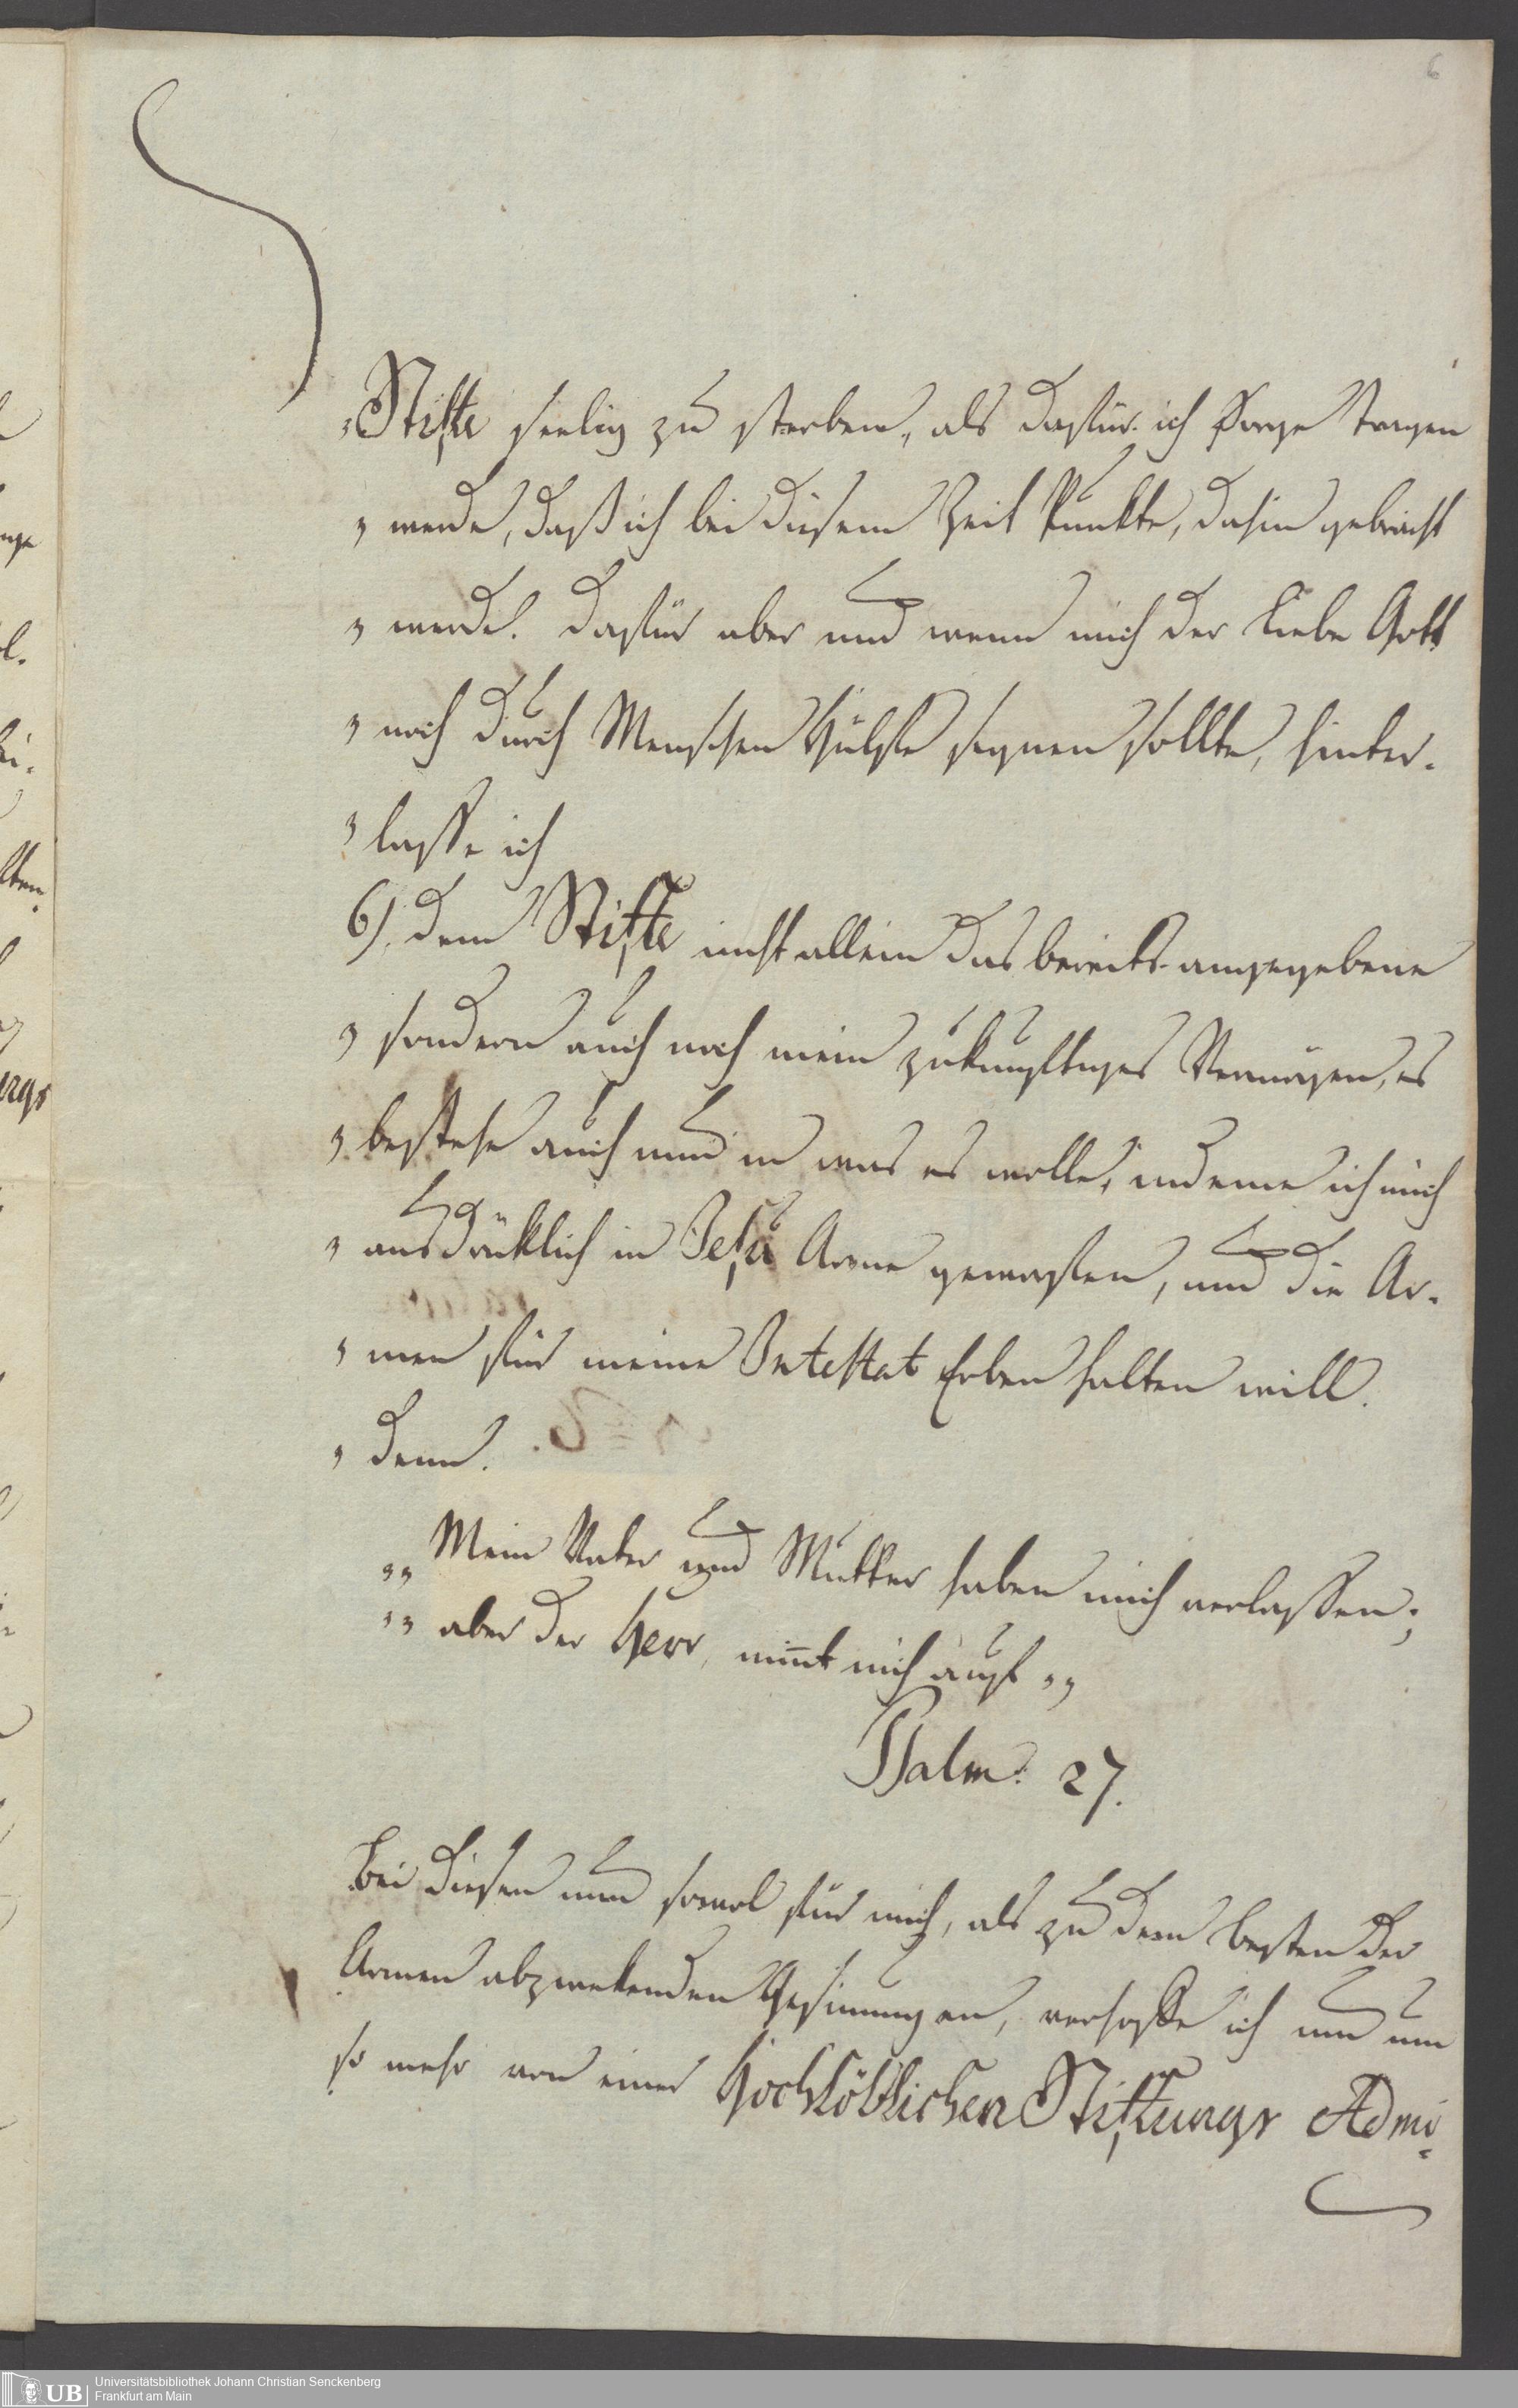 6
„Stifte seelig zu sterben, als dafür ich Sorge tragen
„ werde, daß ich bei diesem Zeit Punkte, dahin gebracht
„ werde. Dafür aber und wenn mich der Liebe Gott
„ noch durch Menschen Hülfe segnen sollte, hinter-
„ lasse ich
6). dem Stifte nicht allein das bereits angegebene
„ sondern auch noch mein zukünftiges Vermögen, es
„ bestehe auch nun in was es wolle, indeme ich mich
„ ausdrücklich in Jesu Arme geworfen, und die Ar-
„ men für meine Intestat Erben halten will.
„ denn.
„„ Mein Vater und Mutter haben mich verlassen;
„„ aber der Herr, nim̅t mich auf „„
Psalm: 27.
Bei diesen nun sowol für mich, als zu dem besten der
Armen abzwekenden Gesinnungen, verhoffe ich nun um
so mehr von einer Hochlöblichen Stiftungs Admi-
UB
Universitätsbibliothek Johann Christian Senckenberg
Frankfurt am Main